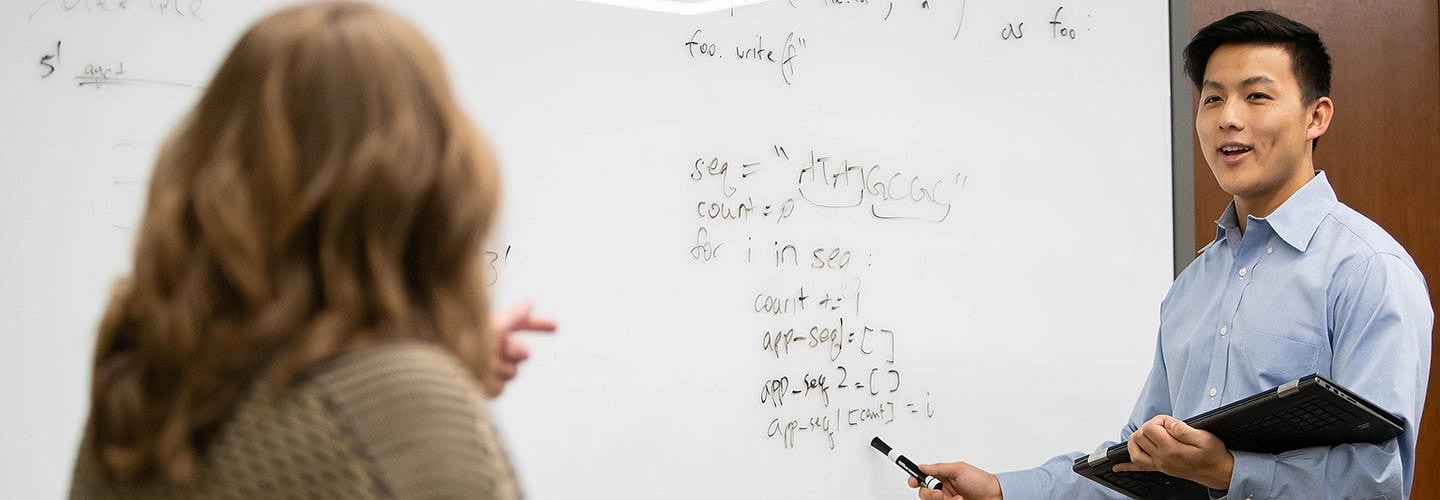 as foo:
foo.write(f"
5'
age1
seq = "ATATGCGC"
count = 0
for i in seq:
3'
count += 1
app-seq1 = []
app-seq2 = []
app-seq1[count] = i